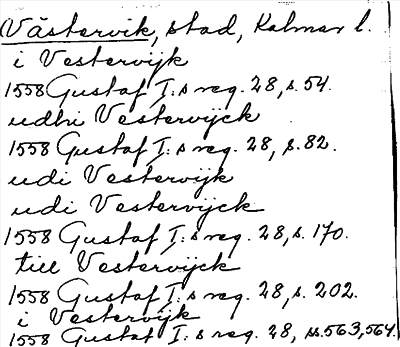 Västervik, stad, Kalmar l.
i Vestervijk
1558 Gustaf I:s reg. 28, s. 54.
udhi Vestervijck
1558 Gustaf I:s reg. 28, s. 82.
udi Vestervijk
udi Vestervijck
1558 Gustaf I:s reg. 28, s. 170.
till Vestervijck
1558 Gustaf I:s reg. 28, s. 202.
i Vestervijk
1558 Gustaf I:s reg. 28, ss. 563, 564.